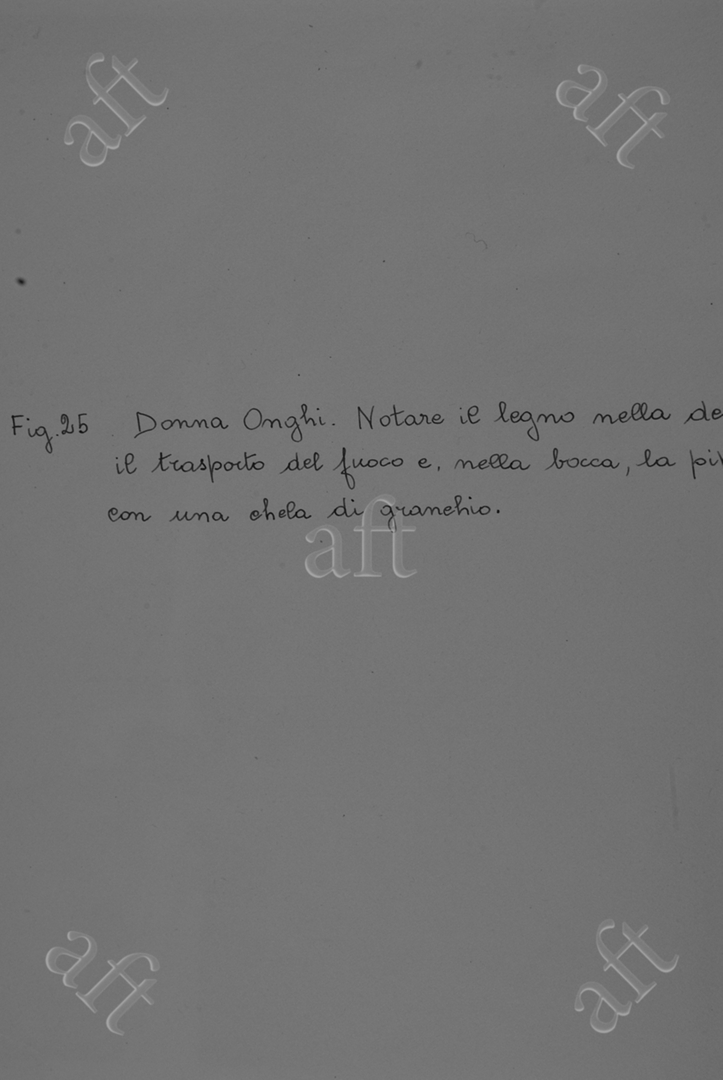 aft
aft
Fig.25 Donna Onghi. Notare il legno nella de
il trasporto del fuoco e, nella bocca, la pi
con una chela di granchio.
aft
aft
aft